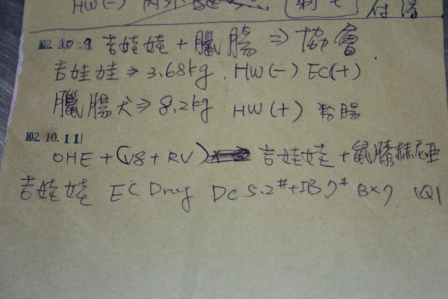 HW(-)
付清
102.10.9 吉娃娃 + 臘腸 ⇒ 協會
吉娃娃 → 3.68kg HW(-) EC(+)
臘腸犬 → 8.2kg HW(+) 臘腸
102.10.11
OHE + (V8 + RV) 吉娃娃 + 鼠膝赫尼亞
吉娃娃 EC Drug DC 5.2# + IB 7# B×7